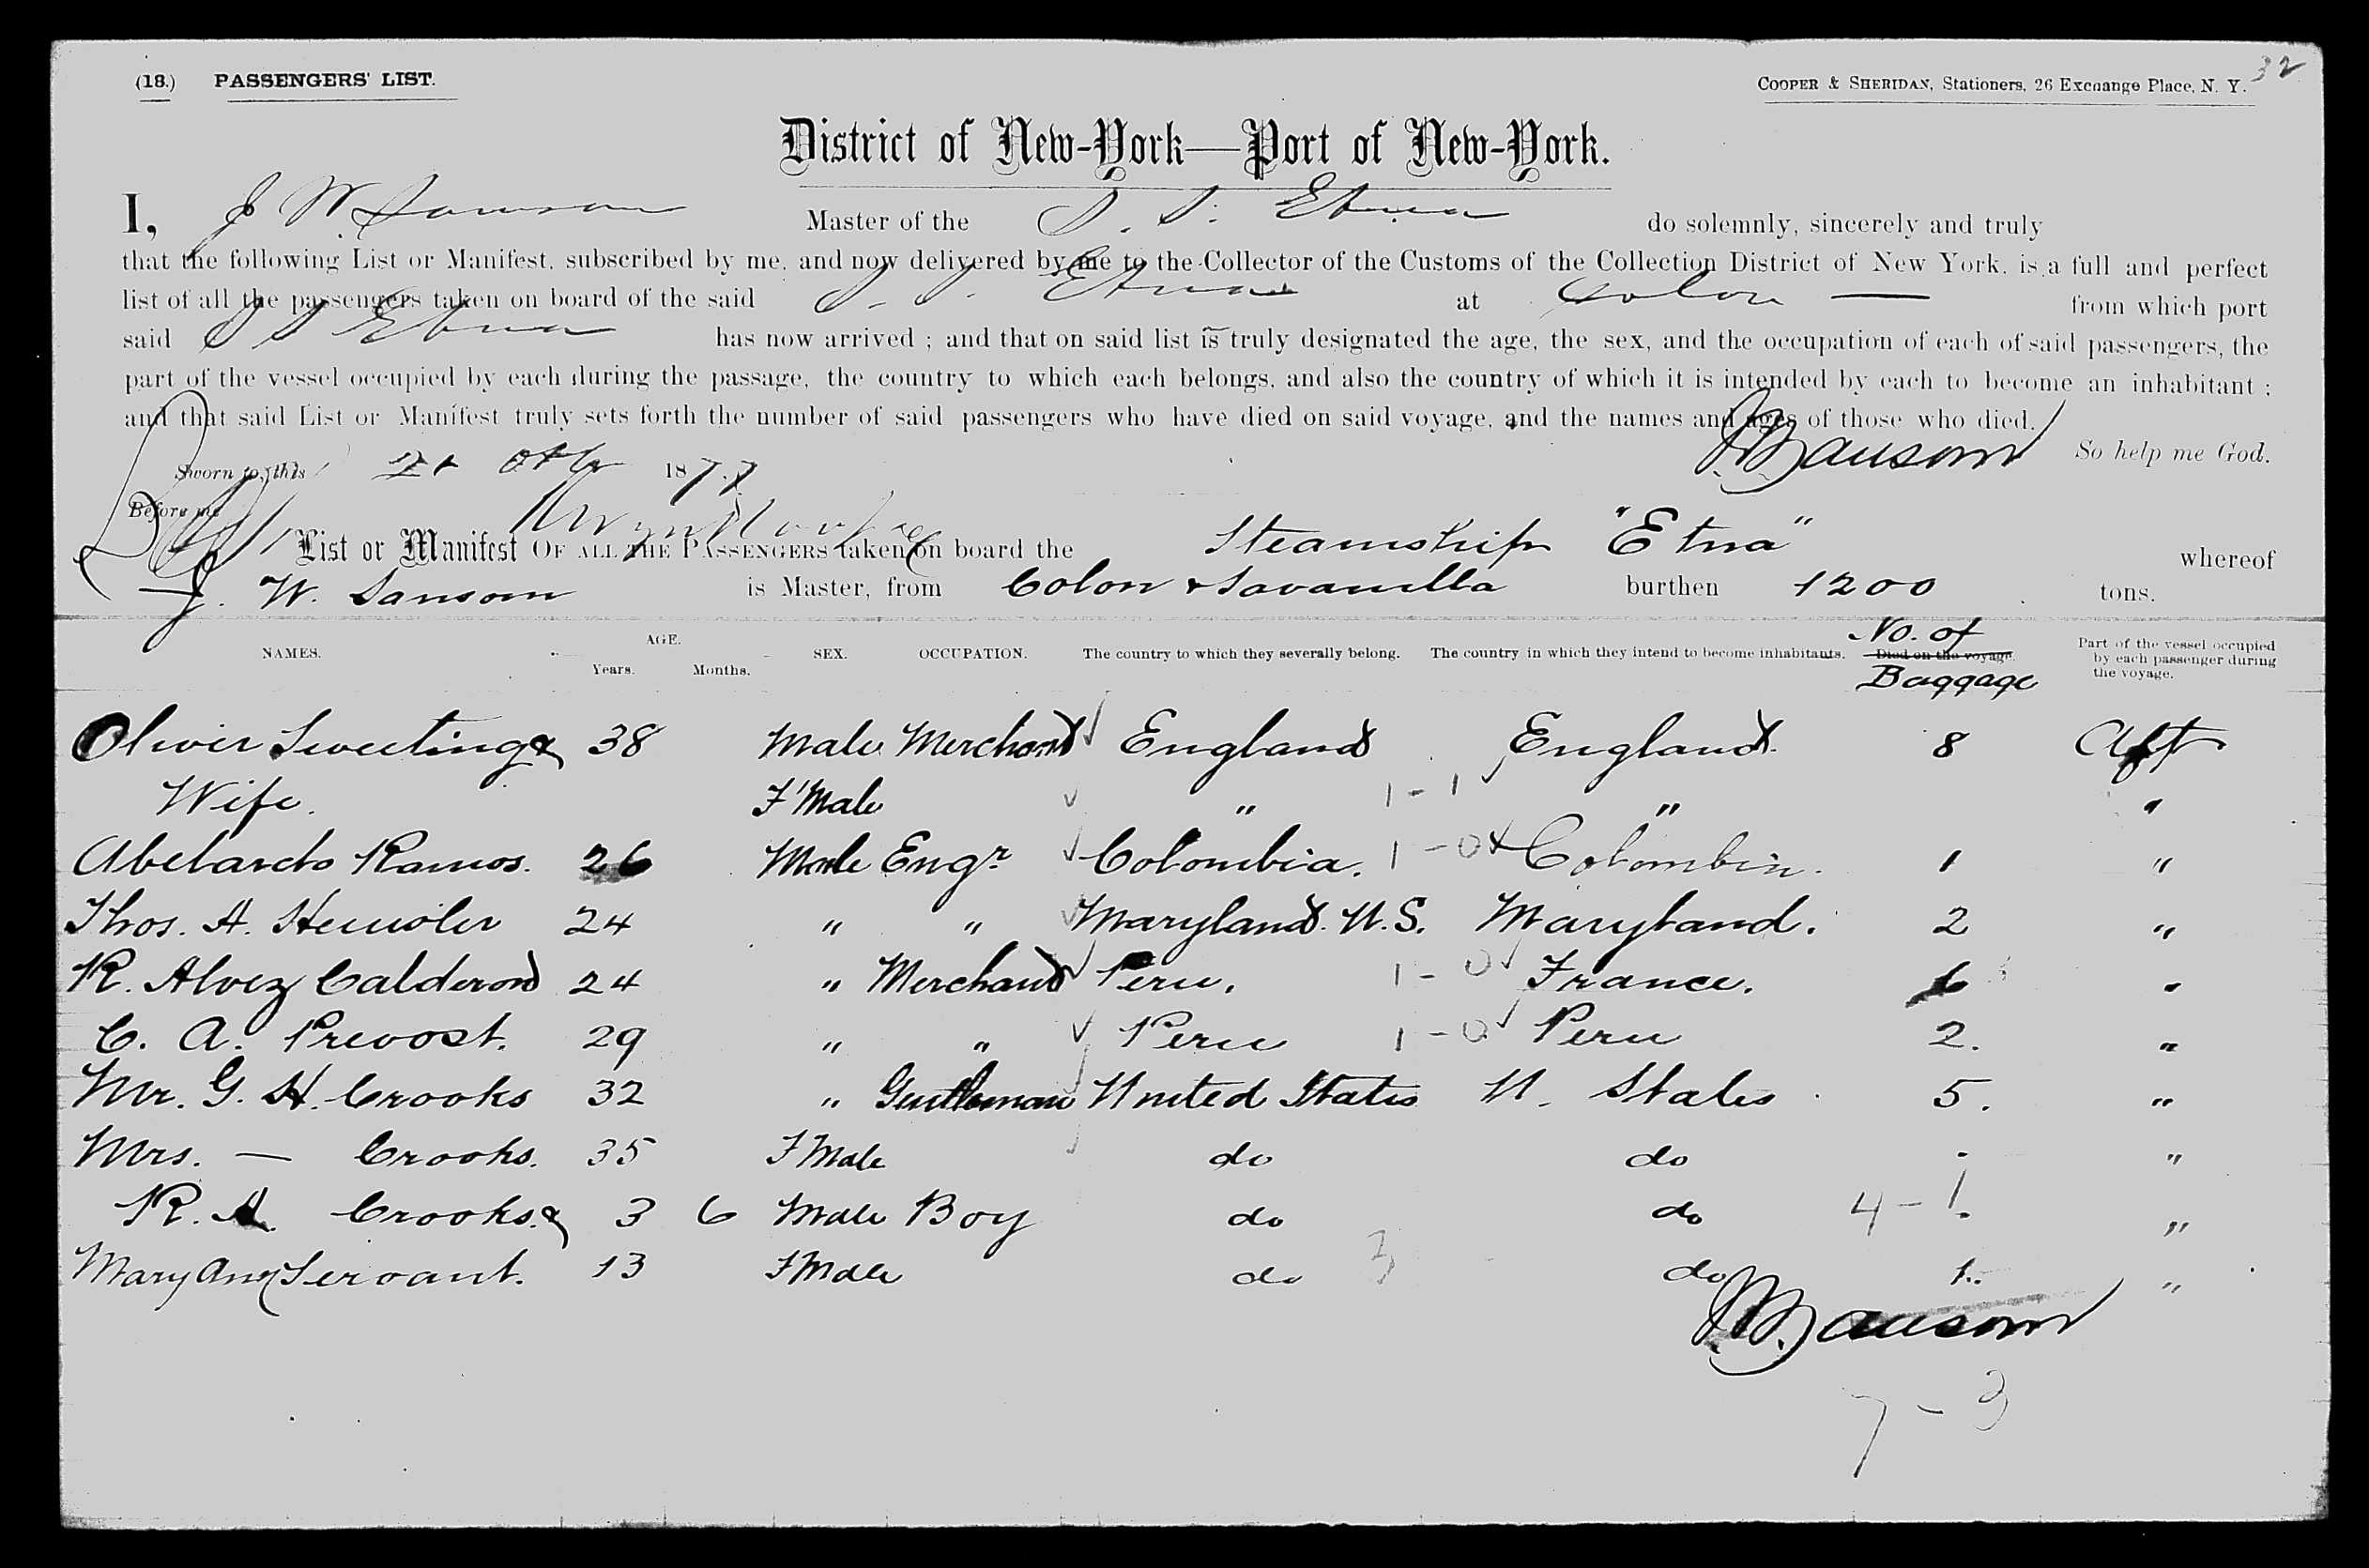 32
(18.) PASSENGERS' LIST. COOPER & SHERIDAN, Stationers, 26 Exchange Place, N. Y.
District of New-York—Port of New-York.
I, J W Sansom Master of the S. S. Etna do solemnly, sincerely and truly
that the following List or Manifest, subscribed by me, and now delivered by me to the Collector of the Customs of the Collection District of New York, is a full and perfect
list of all the passengers taken on board of the said S. S. Etna at Colon — from which port
said S S Etna has now arrived ; and that on said list is truly designated the age, the sex, and the occupation of each of said passengers, the
part of the vessel occupied by each during the passage, the country to which each belongs, and also the country of which it is intended by each to become an inhabitant ;
and that said List or Manifest truly sets forth the number of said passengers who have died on said voyage, and the names and ages of those who died.
J.W. Sansom So help me God.
Sworn to, this 1877
Before me
List or Manifest OF ALL THE PASSENGERS taken on board the Steamship "Etna" whereof
J. W. Sansom is Master, from Colon & Savanilla burthen 1200 tons.
NAMES. AGE. Years. Months. SEX. OCCUPATION. The country to which they severally belong. The country in which they intend to become inhabitants. No. of Died on the voyage. Baggage Part of the vessel occupied by each passenger during the voyage.
Oliver Sweeting & 38 Male Merchant England England 8 Aft
Wife. F'Male " 1-1 " "
Abelardo Ramos. 26 Male Engr Colombia. 1-0 Colombia. 1 "
Thos. A. 24 " " Maryland. U.S. Maryland. 2 "
R. Alvez Calderon 24 " Merchant Peru. 1-0 France. 6 "
C. A. Prevost. 29 " " Peru 1-0 Peru 2. "
Mr. G. H. Crooks 32 " Gentleman United States U. States 5. "
Mrs. — Crooks. 35 FMale do do - "
R. A. Crooks. & 3 6 Male Boy do do 4-1 "
Mary Ann Servant. 13 FMale do 3 do 1. "
J.W. Sansom
7-3